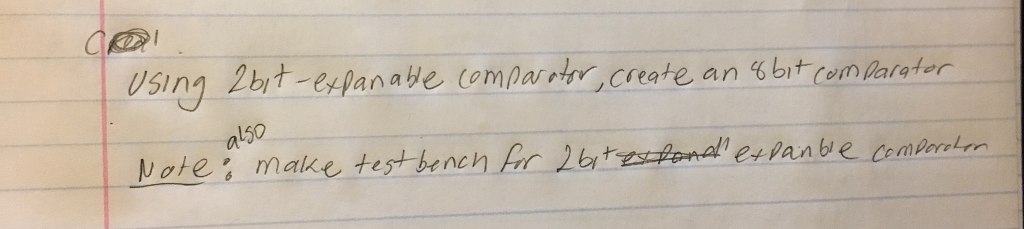 Using 2bit-expanable comparator, create an 8bit comparator
also
Note: make testbench for 2bit expanble comparator